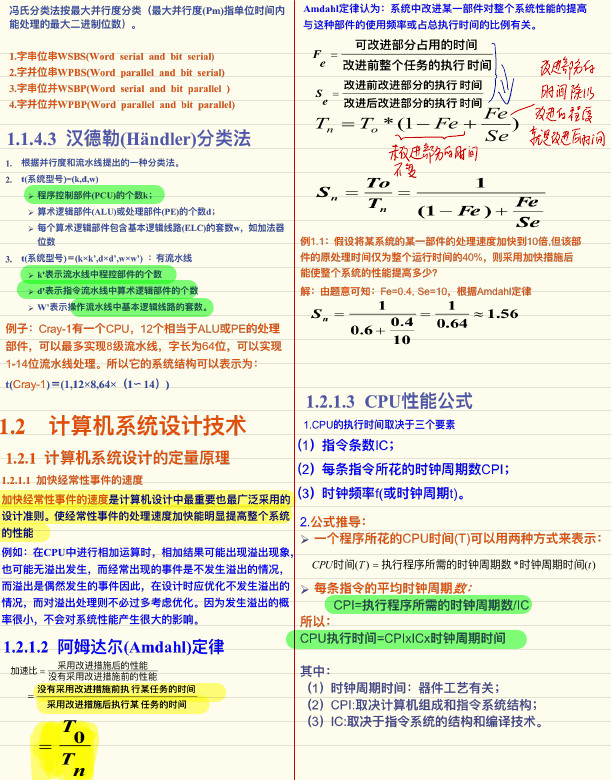 冯氏分类法按最大并行度分类（最大并行度(Pm)指单位时间内
能处理的最大二进制位数）。
1.字串位串WSBS(Word serial and bit serial)
2.字并位串WPBS(Word parallel and bit serial)
3.字串位并WSBP(Word serial and bit parallel )
4.字并位并WPBP(Word parallel and bit parallel)
1.1.4.3 汉德勒(Händler)分类法
1. 根据并行度和流水线提出的一种分类法。
2. t(系统型号)=(k,d,w)
➢ 程序控制部件(PCU)的个数k；
➢ 算术逻辑部件(ALU)或处理部件(PE)的个数d；
➢ 每个算术逻辑部件包含基本逻辑线路(ELC)的套数w，如加法器
位数
3. t(系统型号)＝(k×k’,d×d’,w×w’) ：有流水线
➢ k’表示流水线中程控部件的个数
➢ d’表示指令流水线中算术逻辑部件的个数
➢ W’表示操作流水线中基本逻辑线路的套数。
例子：Cray-1有一个CPU，12个相当于ALU或PE的处理
部件，可以最多实现8级流水线，字长为64位，可以实现
1-14位流水线处理。所以它的系统结构可以表示为：
t(Cray-1)＝(1,12×8,64×（1∽14）)
1.2 计算机系统设计技术
1.2.1 计算机系统设计的定量原理
1.2.1.1 加快经常性事件的速度
加快经常性事件的速度是计算机设计中最重要也最广泛采用的
设计准则。使经常性事件的处理速度加快能明显提高整个系统
的性能
例如：在CPU中进行相加运算时，相加结果可能出现溢出现象，
也可能无溢出发生，而经常出现的事件是不发生溢出的情况，
而溢出是偶然发生的事件因此，在设计时应优化不发生溢出的
情况，而对溢出处理则不必过多考虑优化。因为发生溢出的概
率很小，不会对系统性能产生很大的影响。
1.2.1.2 阿姆达尔(Amdahl)定律
加速比 = 采用改进措施后的性能 / 没有采用改进措施前的性能
= 没有采用改进措施前执行某任务的时间 / 采用改进措施后执行某任务的时间
= T0 / Tn
Amdahl定律认为：系统中改进某一部件对整个系统性能的提高
与这种部件的使用频率或占总执行时间的比例有关。
Fe = 可改进部分占用的时间 / 改进前整个任务的执行时间
Se = 改进前改进部分的执行时间 / 改进后改进部分的执行时间
改进部分的
时间除以
改进的程度
就是改进后时间
Tn = To * (1 − Fe + Fe / Se)
未改进部分的时间
不变
Sn = To / Tn = 1 / ((1 − Fe) + Fe / Se)
例1.1：假设将某系统的某一部件的处理速度加快到10倍.但该部
件的原处理时间仅为整个运行时间的40%，则采用加快措施后
能使整个系统的性能提高多少?
解：由题意可知：Fe=0.4, Se=10，根据Amdahl定律
Sn = 1 / (0.6 + 0.4 / 10) = 1 / 0.64 ≈ 1.56
1.2.1.3 CPU性能公式
1.CPU的执行时间取决于三个要素
（1）指令条数IC；
（2）每条指令所花的时钟周期数CPI；
（3）时钟频率f(或时钟周期t)。
2.公式推导：
➢ 一个程序所花的CPU时间(T)可以用两种方式来表示：
CPU时间(T) = 执行程序所需的时钟周期数 * 时钟周期时间(t)
➢ 每条指令的平均时钟周期数：
CPI=执行程序所需的时钟周期数/IC
所以：
CPU执行时间=CPIxICx时钟周期时间
其中：
（1）时钟周期时间：器件工艺有关；
（2）CPI:取决计算机组成和指令系统结构；
（3）IC:取决于指令系统的结构和编译技术。